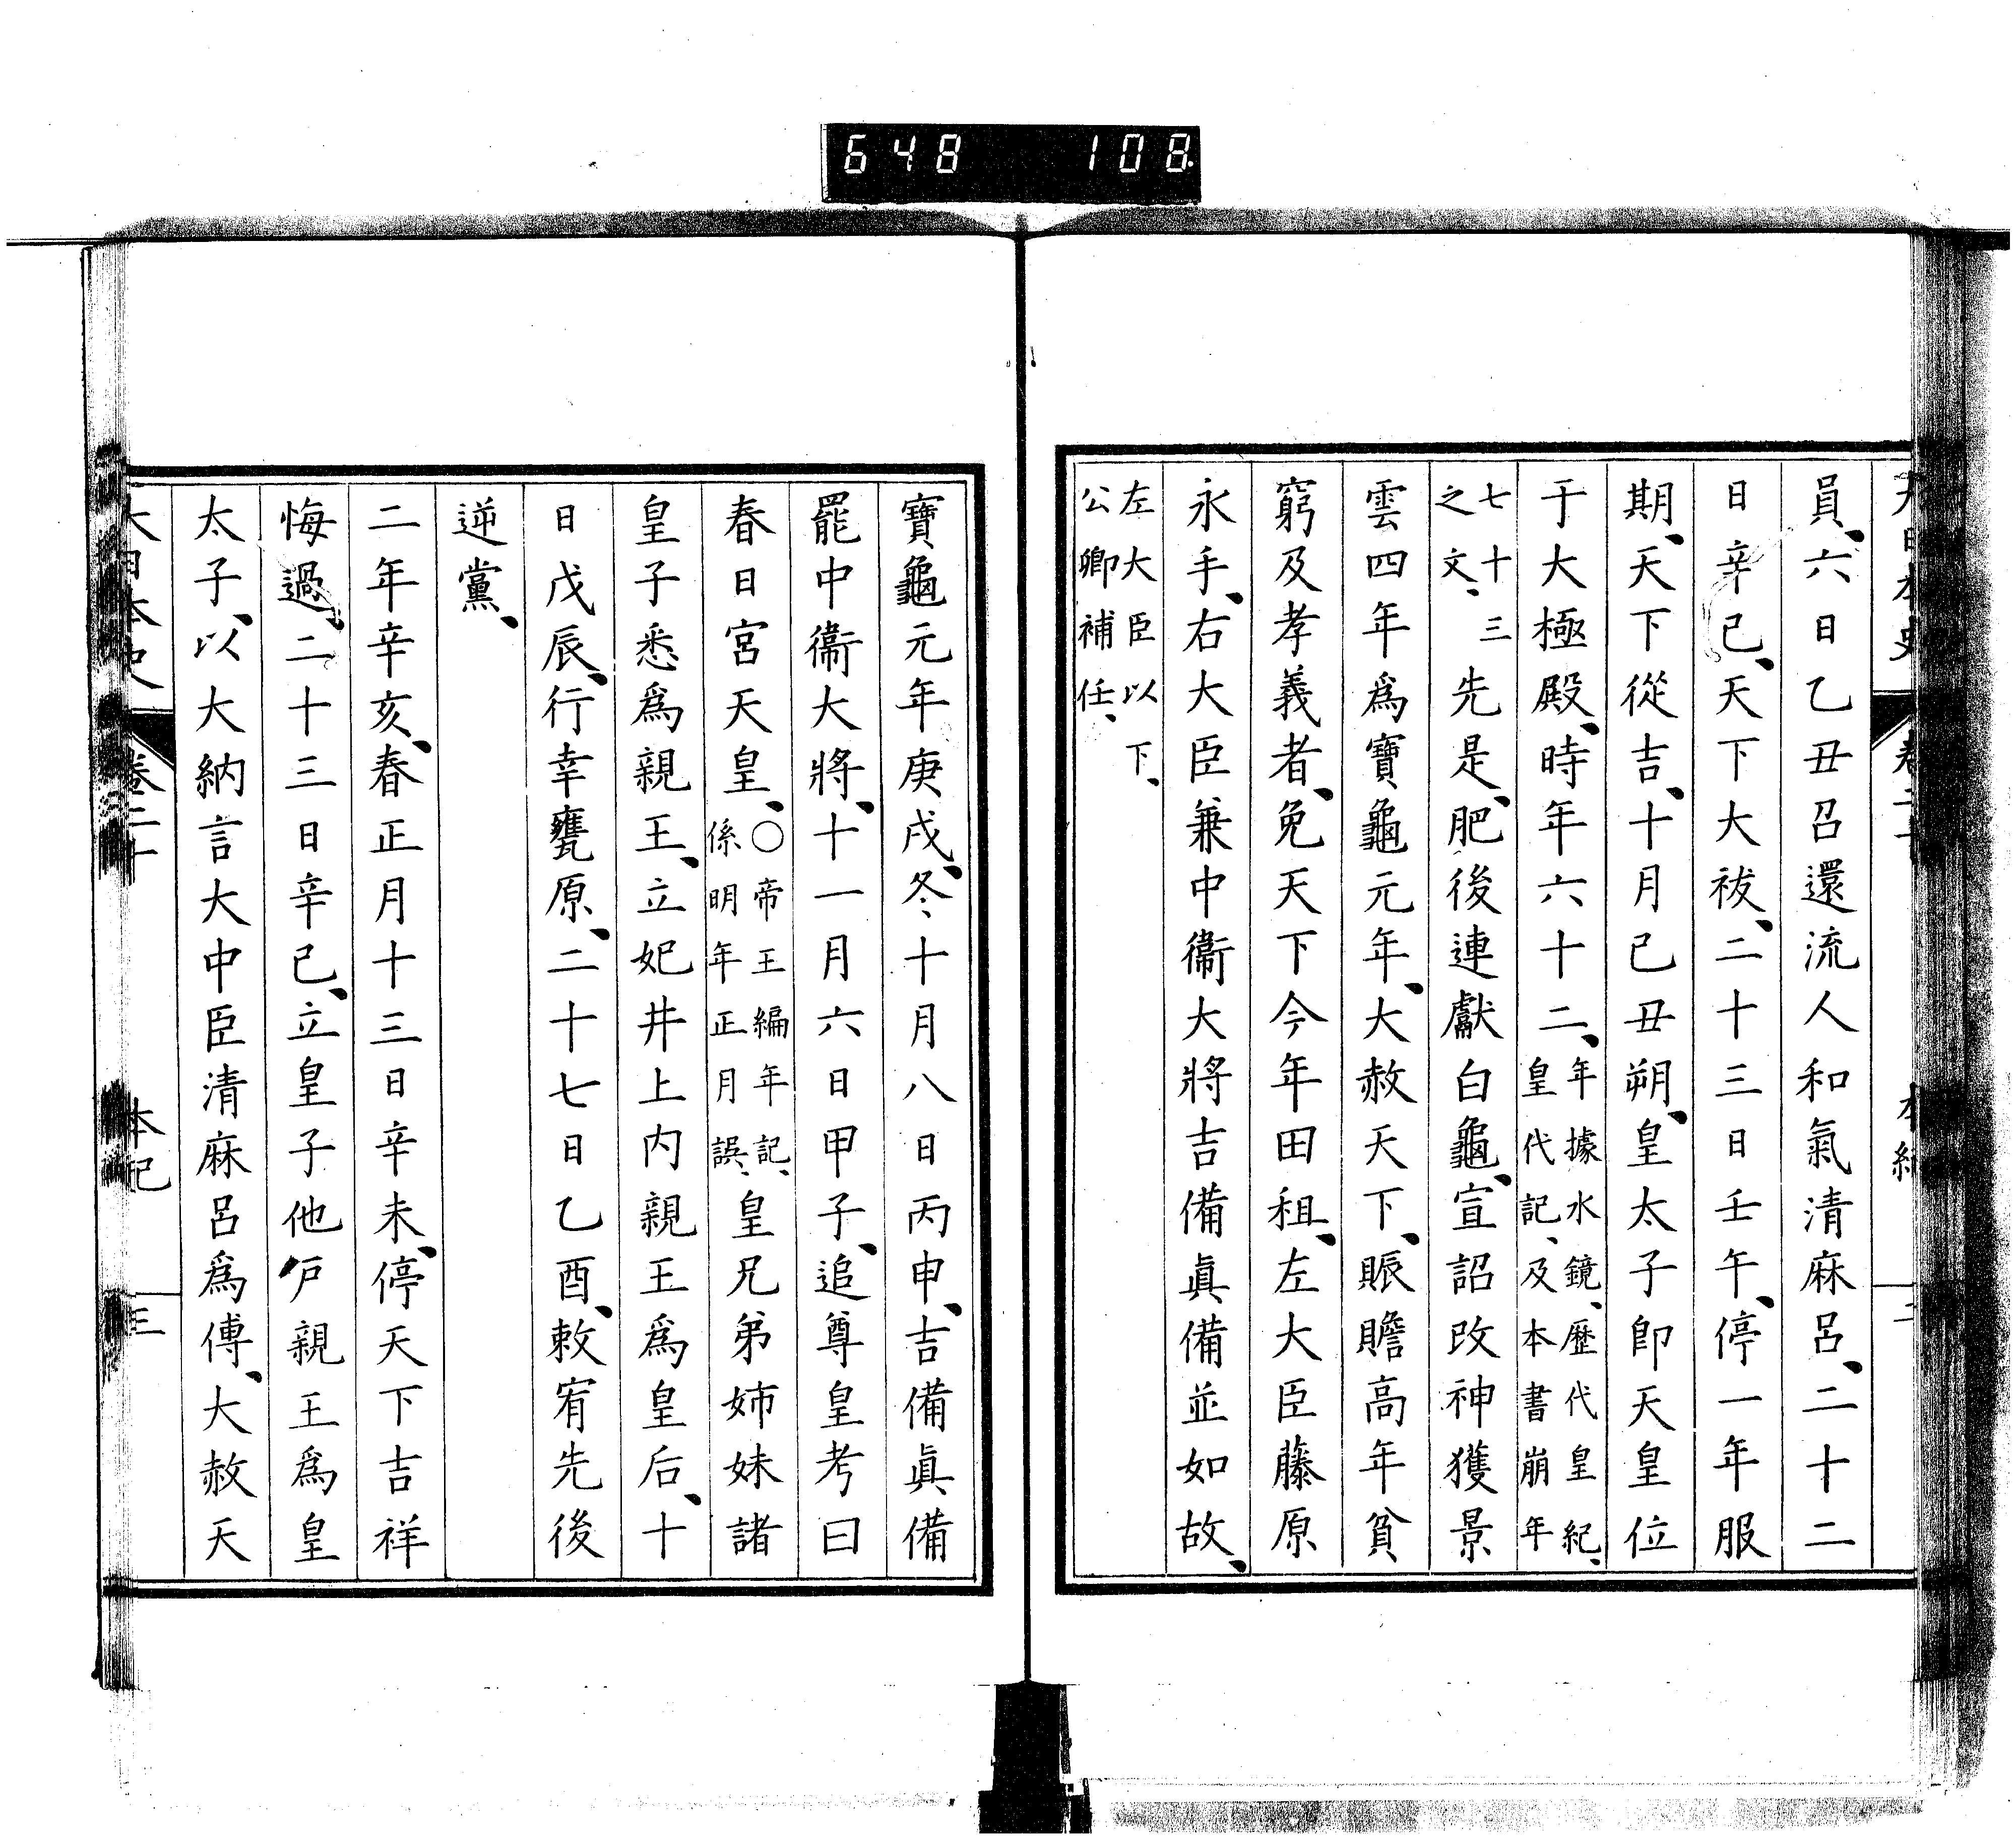 648 108
員、六日乙丑召還流人和氣清麻呂、二十二
日辛巳、天下大祓、二十三日壬午、停一年服
期、天下從吉、十月己丑朔、皇太子卽天皇位
于大極殿、時年六十二、年據水鏡、歷代皇紀、皇代記、及本書崩年
七十三之文、先是、肥後連獻白龜、宣詔改神獲景
雲四年爲寶龜元年、大赦天下、賑贍高年貧
窮及孝義者、免天下今年田租、左大臣藤原
永手、右大臣兼中衞大將吉備眞備並如故、
左大臣以下、公卿補任、
寶龜元年庚戌、冬十月八日丙申、吉備眞備
罷中衞大將、十一月六日甲子、追尊皇考曰
春日宮天皇、〇帝王編年記、係明年正月誤、皇兄弟姉妹諸
皇子悉爲親王、立妃井上内親王爲皇后、十
日戊辰、行幸甕原、二十七日乙酉、敕宥先後
逆黨、
二年辛亥、春正月十三日辛未、停天下吉祥
悔過、二十三日辛巳、立皇子他戸親王爲皇
太子、以大納言大中臣清麻呂爲傅、大赦天
大日本史 卷三十 本紀 三